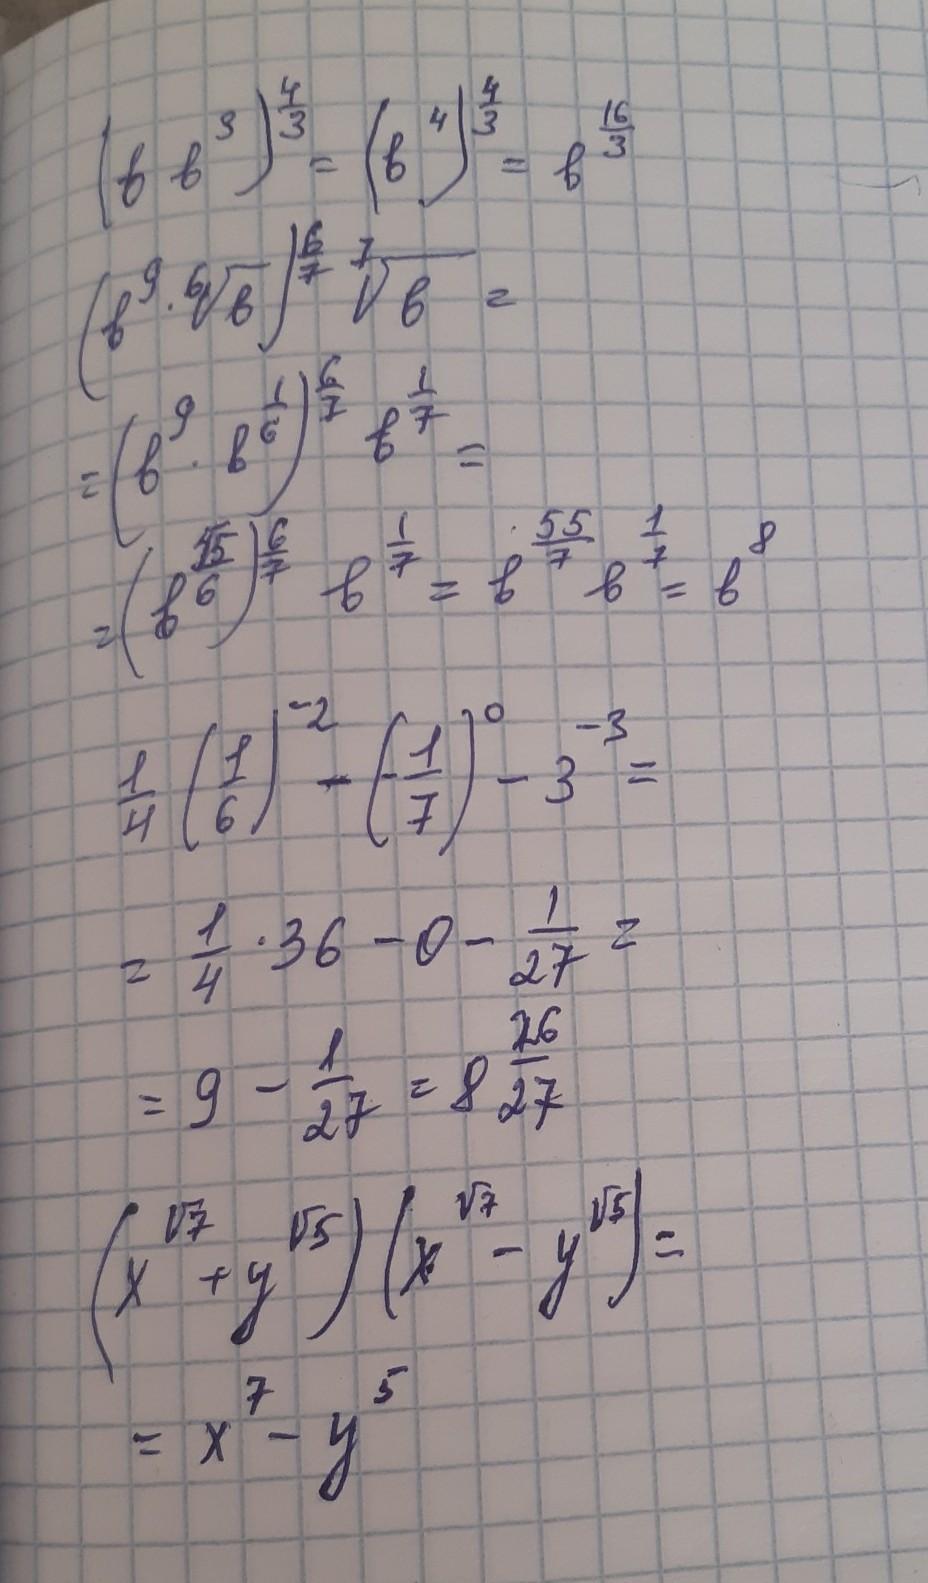 (b b³)^(4/3) = (b⁴)^(4/3) = b^(16/3)
(b⁹ · ⁶√b)^(6/7) ⁷√b =
= (b⁹ · b^(1/6))^(6/7) b^(1/7) =
= (b^(55/6))^(6/7) b^(1/7) = b^(55/7) b^(1/7) = b⁸
1/4 (1/6)^(-2) - (-1/7)^0 - 3^(-3) =
= 1/4 · 36 - 0 - 1/27 =
= 9 - 1/27 = 8 26/27
(x^(√7) + y^(√5)) (x^(√7) - y^(√5)) =
= x⁷ - y⁵